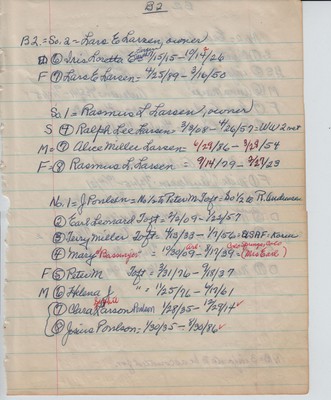 B2
B2. = So. 2 ~ Lars E Larsen, owner
D ⑥ Iris Loretta 5/15/15 - 10/14/26
F ⑦ Lars E Larsen = 4/25/89 - 3/16/50
So 1 = Rasmus L Larsen, owner
S ④ Ralph Lee Larsen = 3/3/08 - 4/26/57 = WW 2 vet
M = ⑦ Alice Miller Larsen = 4/29/86 - 3/28/54
F = ⑧ Rasmus L. Larsen = 9/14/79 - 2/27/23
No. 1 = J Poulson = No 1/2 to Peter M Toft = So 1/2 to R. Andersen
② Earl Leonard Toft = 9/2/09 - 1/22/57
③ Terry Miller Toft = 4/13/33 - 1/7/56 = USAF - Korea
④ Mary "Rasmussen" = 12/20/09 - 8/17/39 (Mrs Earl)
F ⑤ Peter M Toft = 3/31/76 - 9/18/37
M ⑥ Helena J " = 1/25/76 - 4/17/61
⑦ Clara Larson Poulson 1/28/35 - 12/29/14
⑧ Josius Poulson = 1/30/35 - 8/30/86